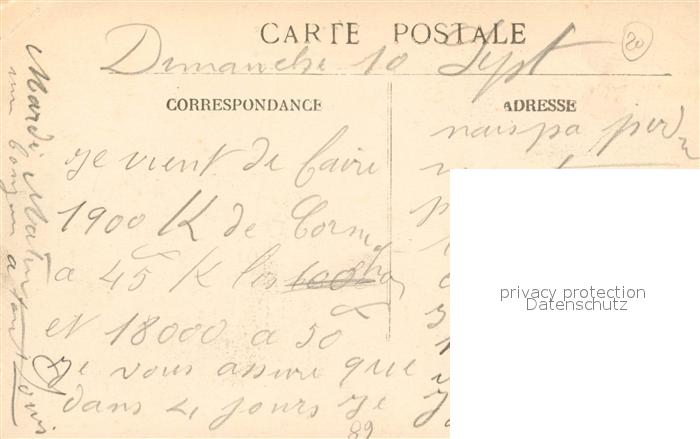 CARTE POSTALE
20
Dimanche 10 Sept
CORRESPONDANCE
je vient de faire
1900 K de
a 45 K les
et 18000 a 50
je vous assure que
dans 4 jours je
89
ADRESSE
nais pa
Mardi Matin
un bonjour a tous Louis
privacy protection
Datenschutz